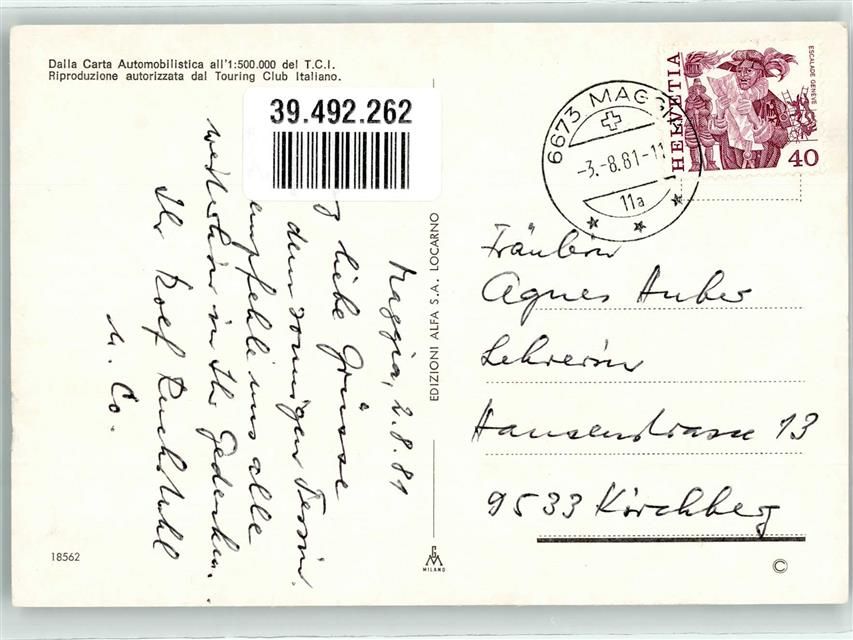 Dalla Carta Automobilistica all'1:500.000 del T.C.I.
Riproduzione autorizzata dal Touring Club Italiano.
39.492.262
Maggia, 2.8.81
liebe Grüsse
dem sonnigen Tessin.
empfehle uns alle
weiterhin in Ihr Gedenken.
Ihr Ruckstuhl
u. Co.
18562
EDIZIONI ALFA S.A. LOCARNO
MILANO
6673 MAGG
-3.-8.81-11
11a
HELVETIA
ESCALADE GENÈVE
40
Fräulein
Agnes Huber
Lehrerin
Hausenstrasse 13
9533 Kirchberg
©